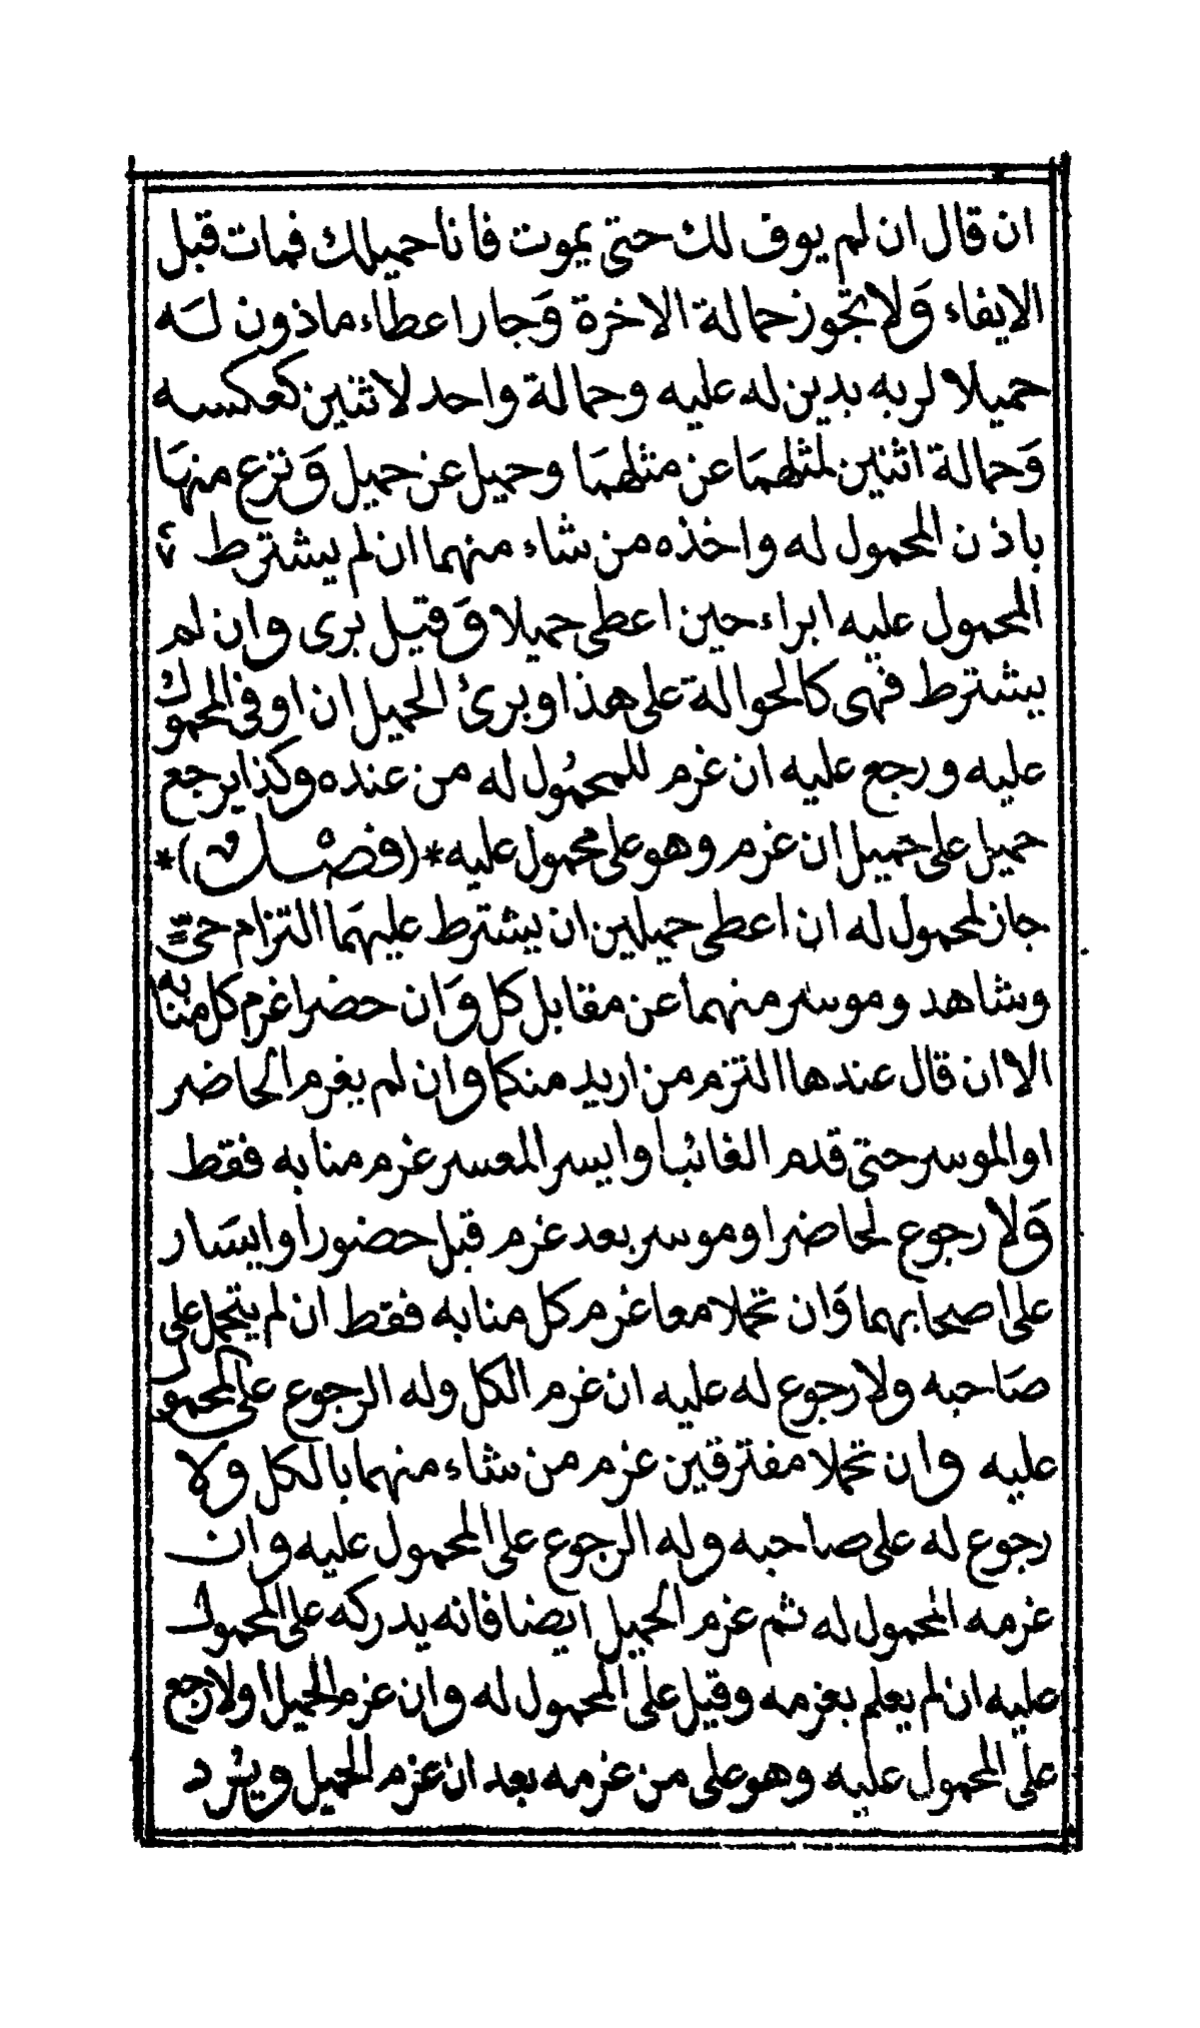 ان قال ان لم يوف لك حتى يموت فانا حميلك فمات قبل
الايفاء وَلا تجوز حمالة الاخرة وَجاز اعطاء ماذون لَه
حميلا لربه بدين له عليه وحمالة واحد لاثنين كعكسه
وَحمالة اثنين لمثلهمَا عن مثلهمَا وحميل عن حميل وَتزع منهَا
باذن المحمول له واخذه من شاء منهما ان لم يشترط
المحمول عليه ابراء حين اعطى حميلا وَقيل برى وان لم
يشترط فهى كالحوالة على هذا وبرئ الحميل ان اوفى المحمول
عليه ورجع عليه ان غرم للمحمُول له من عنده وكذا يرجع
حميل على حميل ان غرم وهو على محمول عليه *(فصْل)*
جاز لمحمول له ان اعطى حميلين ان يشترط عليهَما التزام حىّ
وشاهد وموسر منهما عن مقابل كل وَان حضرا غرم كل منابه
الا ان قال عندها التزم من اريد منكما وان لم يغرم الحاضر
او الموسر حتى قدم الغائب او ايسر المعسر غرم منابه فقط
وَلا رجوع لحاضر او موسر بعد غرم قبل حضور او ايسَار
على اصحابهما وَان تحملا معا غرم كل منابه فقط ان لم يتحمل على
صَاحبه ولا رجوع له عليه ان غرم الكل وله الرجوع على المحمول
عليه وان تحملا مفترقين غرم من شاء منهما بالكل ولا
رجوع له على صاحبه وله الرجوع على المحمول عليه وان
غرمه المحمول له ثم غرم الحميل ايضا فانه يدركه على المحمول
عليه ان لم يعلم بغرمه وقيل على المحمول له وان غرم الحميل اولا رجع
على المحمول عليه وهو على من غرمه بعد ان غرم الحميل ويرد